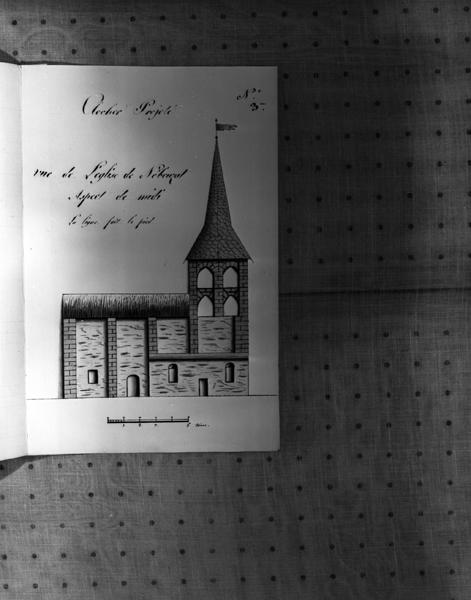 Clocher Projeté
N.°
3.
vue de L'eglise de Nébouzat
Aspect de midi
la ligne fait le pied